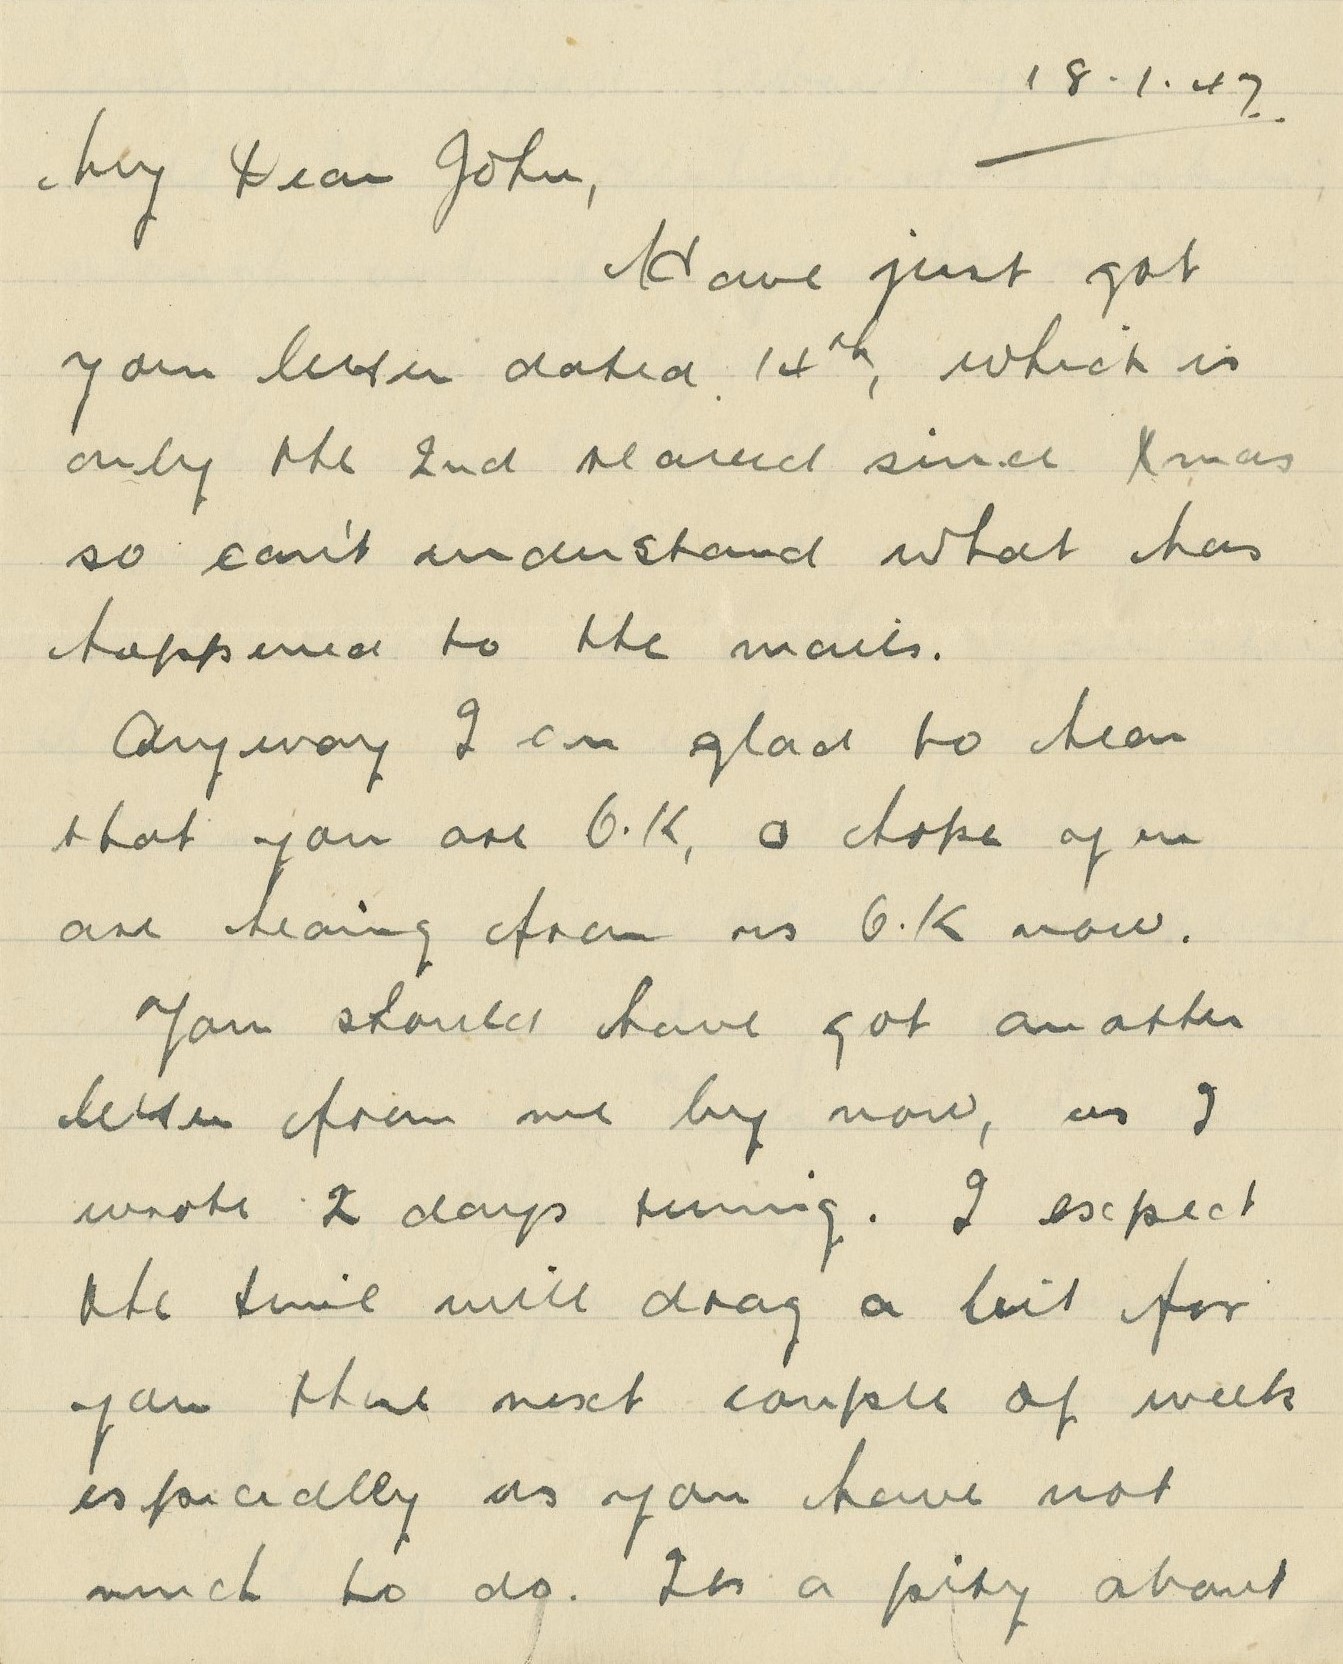 18.1.47.
My Dear John,
Have just got
your letter dated 14th, which is
only the 2nd received since Xmas
so can't understand what has
happened to the mails.
Anyway I am glad to hear
that you are O.K, & hope you
are hearing from us O.K now.
You should have got another
letter from me by now, as I
wrote 2 days running. I expect
the time will drag a bit for
you these next couple of weeks
especially as you have not
much to do. Its a pity about